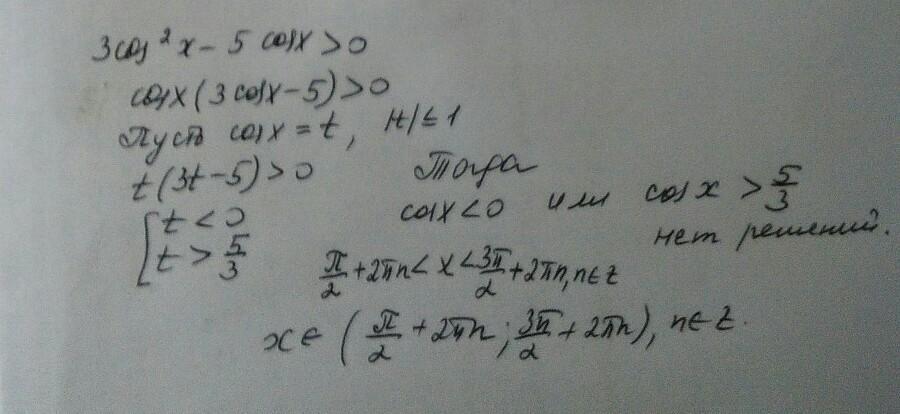 3cos²x - 5 cosx > 0
cosx(3cosx - 5) > 0
Пусть cosx = t, |t| ≤ 1
t(3t - 5) > 0
[ t < 0
t > 5/3
Тогда
cosx < 0 или cosx > 5/3
нет решений.
π/2 + 2πn < x < 3π/2 + 2πn, n∈Z
x ∈ (π/2 + 2πn; 3π/2 + 2πn), n∈Z.